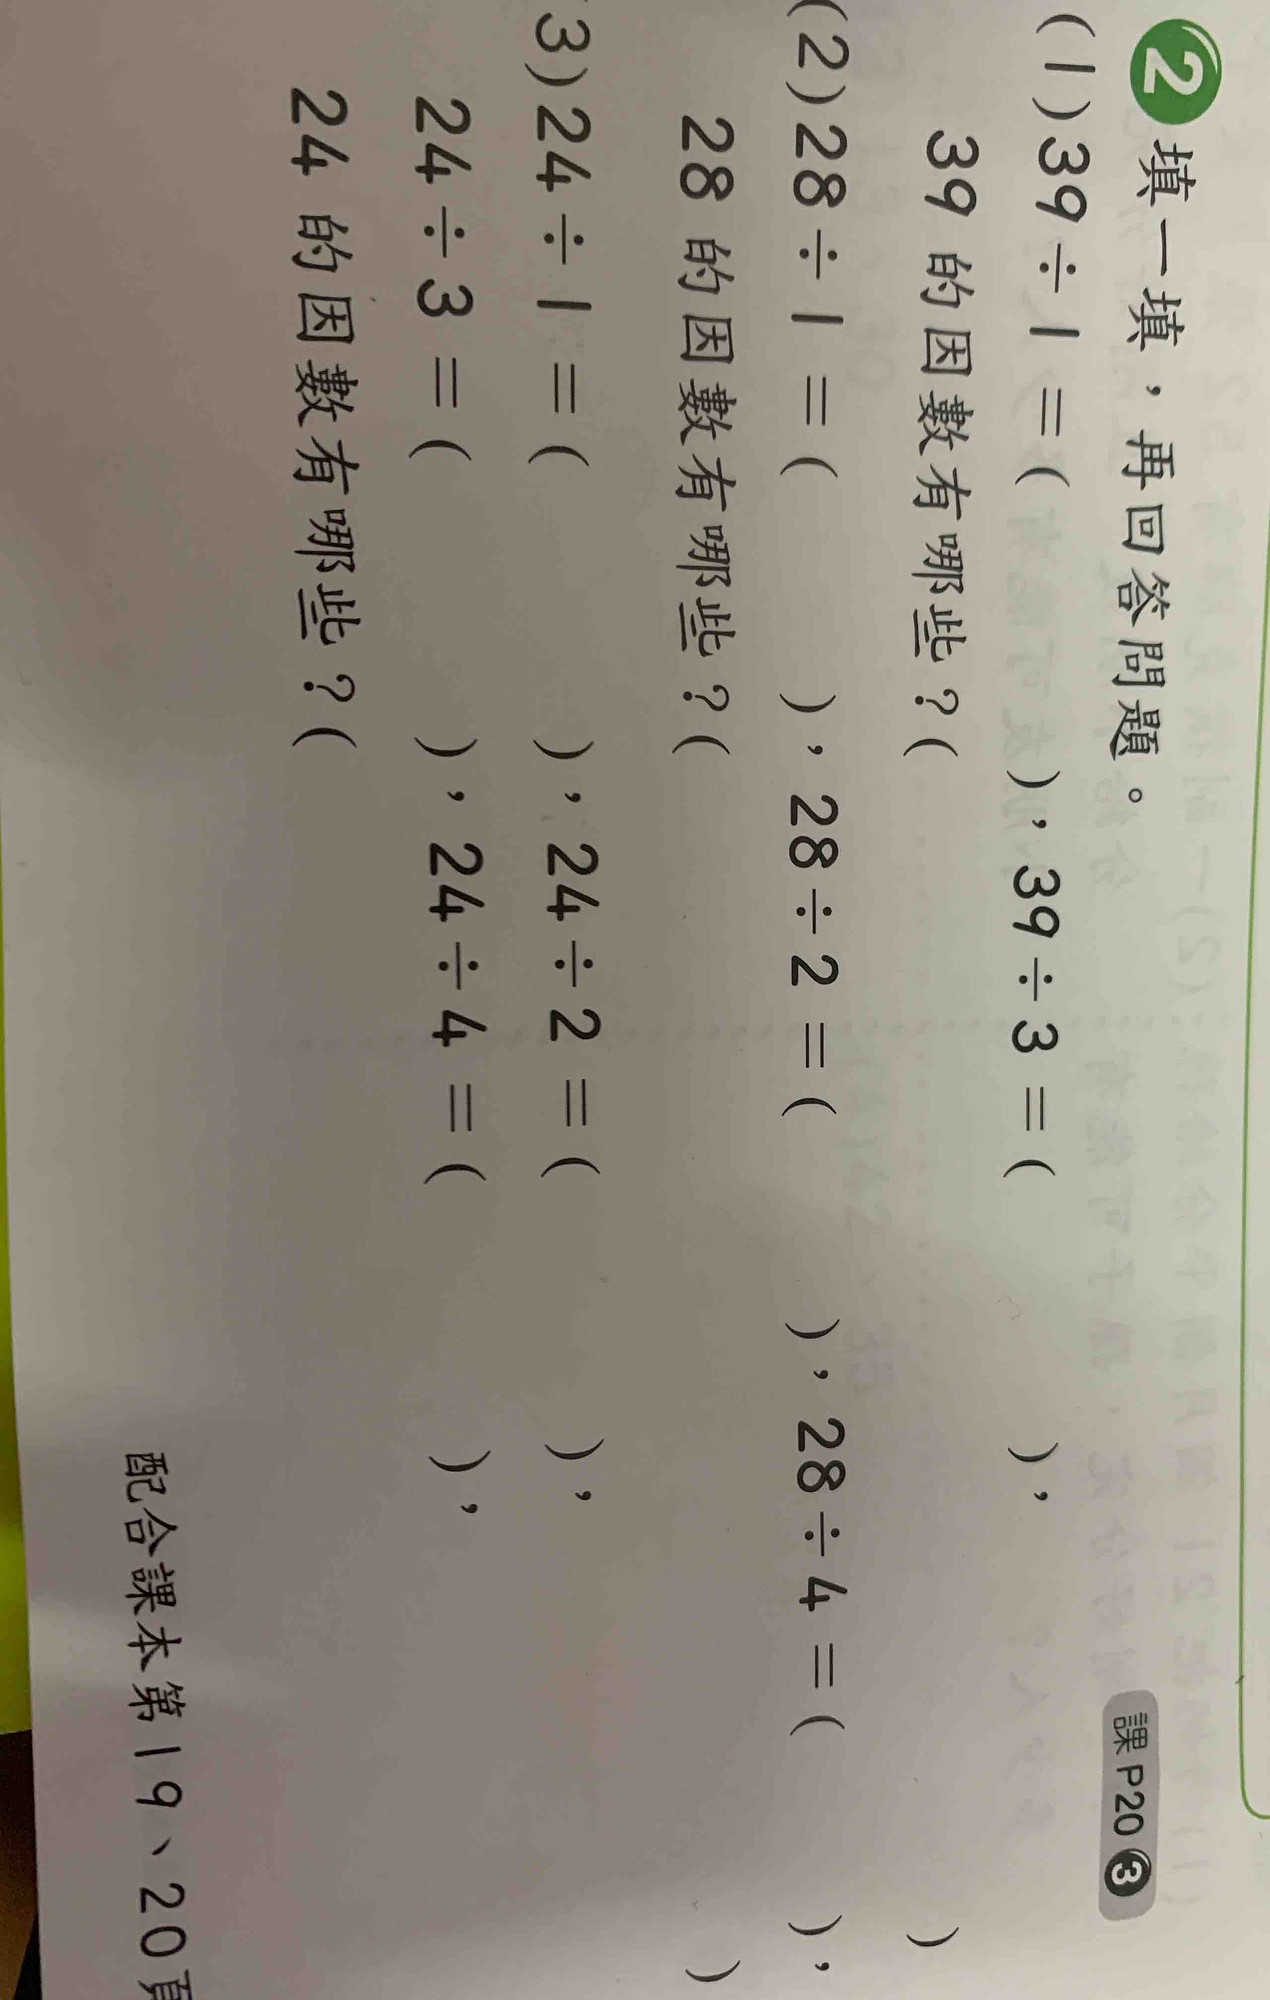 2 填一填，再回答問題。 課 P20 3
(1)39÷1=( ),39÷3=( ),
39 的因數有哪些？( )
(2)28÷1=( ),28÷2=( ),28÷4=( ),
28 的因數有哪些？( )
3)24÷1=( ),24÷2=( ),
24÷3=( ),24÷4=( ),
24 的因數有哪些？(
配合課本第19、20頁